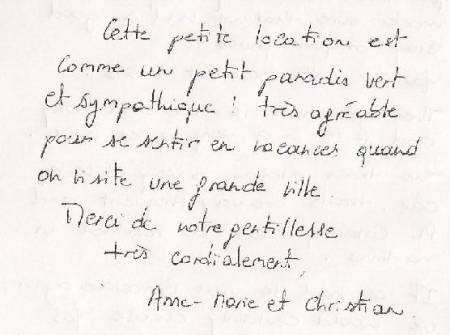 Cette petite location est
comme un petit paradis vert
et sympathique ! très agréable
pour se sentir en vacances quand
on visite une grande ville
Merci de votre gentillesse
très cordialement,
Anne-Marie et Christian.